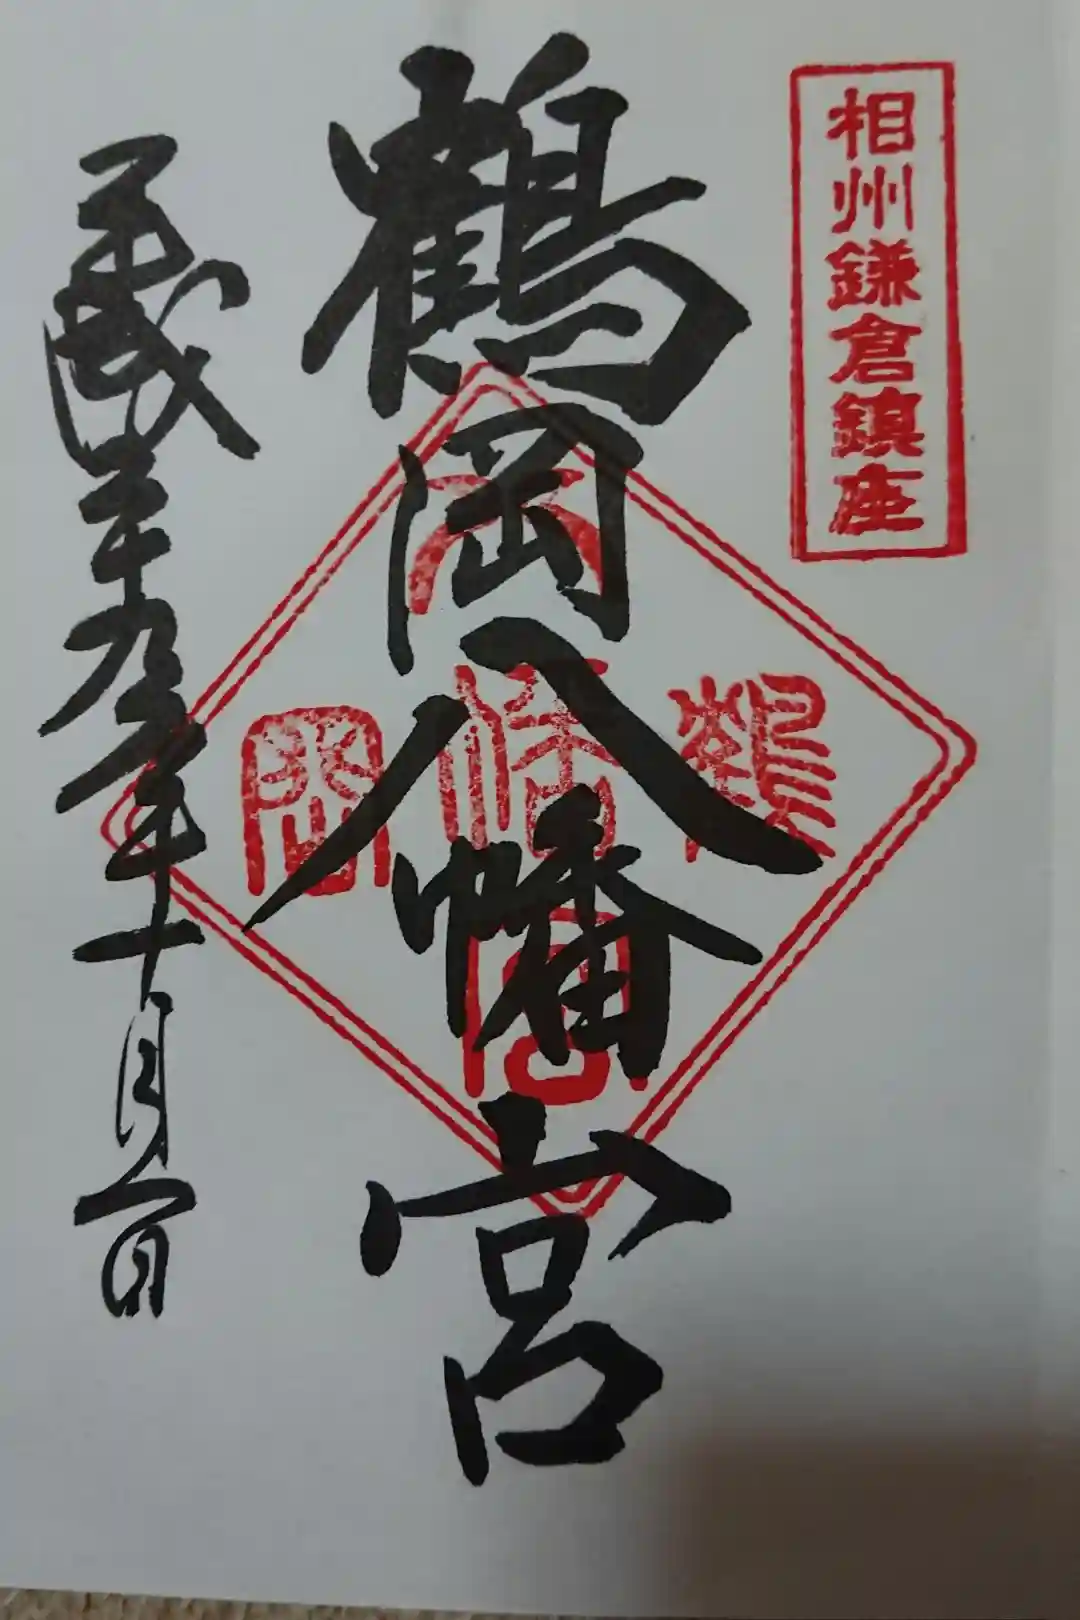 相州鎌倉鎮座
鶴岡八幡宮
鶴岡八幡宮
平成二十九年十月一日